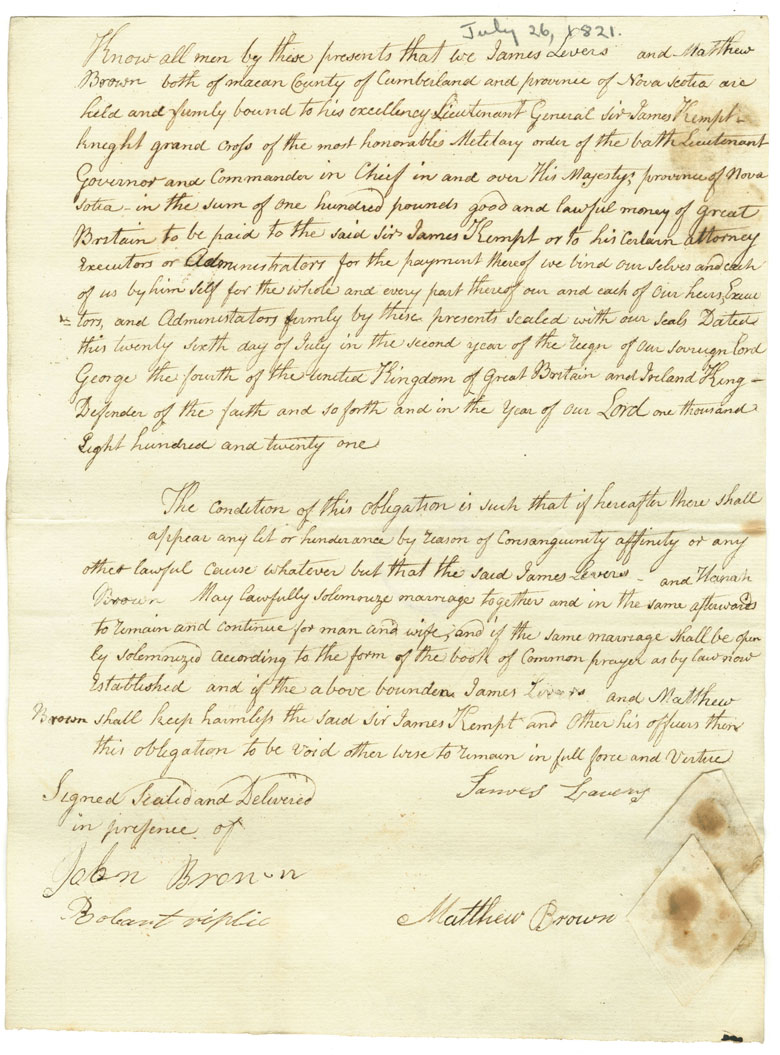 July 26, 1821.
Know all men by these presents that we James Levers and Matthew
Brown both of macan County of Cumberland and province of Nova scotia are
held and firmly bound to his excellency Lieutenant General Sir James Kempt -
knight grand Cross of the most honorable Metelary order of the bath Lieutenant
Governor and Commander in Chief in and over His Majestys province of Nova
sotia - in the sum of one hundred pounds good and lawful money of great
Britain to be paid to the said Sir James Kempt or to his Certain attorney
Executors or Administrators for the payment thereof we bind our selves and each
of us by him self for the whole and every part thereof our and each of our heirs, Execu
= tors, and Administators firmly by these presents sealed with our seals Dated
this twenty sixth day of July in the second year of the reign of our soveriegn Lord
George the fourth of the united Kingdom of Great Britain and Ireland King -
Defender of the faith and so forth and in the Year of our Lord one thousand
Eight hundred and twenty one
The Condition of this obligation is such that if hereafter there shall
appear any let or hinderance by reason of Consanguinity affinity or any
other lawful Cause whatever but that the said James Levers - and Hanah
Brown May lawfully solemnize marriage together and in the same afterwards
to remain and continue for man and wife, and if the same marriage shall be open
ly solemnized according to the form of the book of Common prayer as by law now
Established and if the above bounden James Levers and Matthew
Brown shall keep harmless the said Sir James Kempt and Other his officers then
this obligation to be void other wise to remain in full force and Vertue
Signed Sealed and Delivered
in presence of
James Lavers
John Brown
Matthew Brown